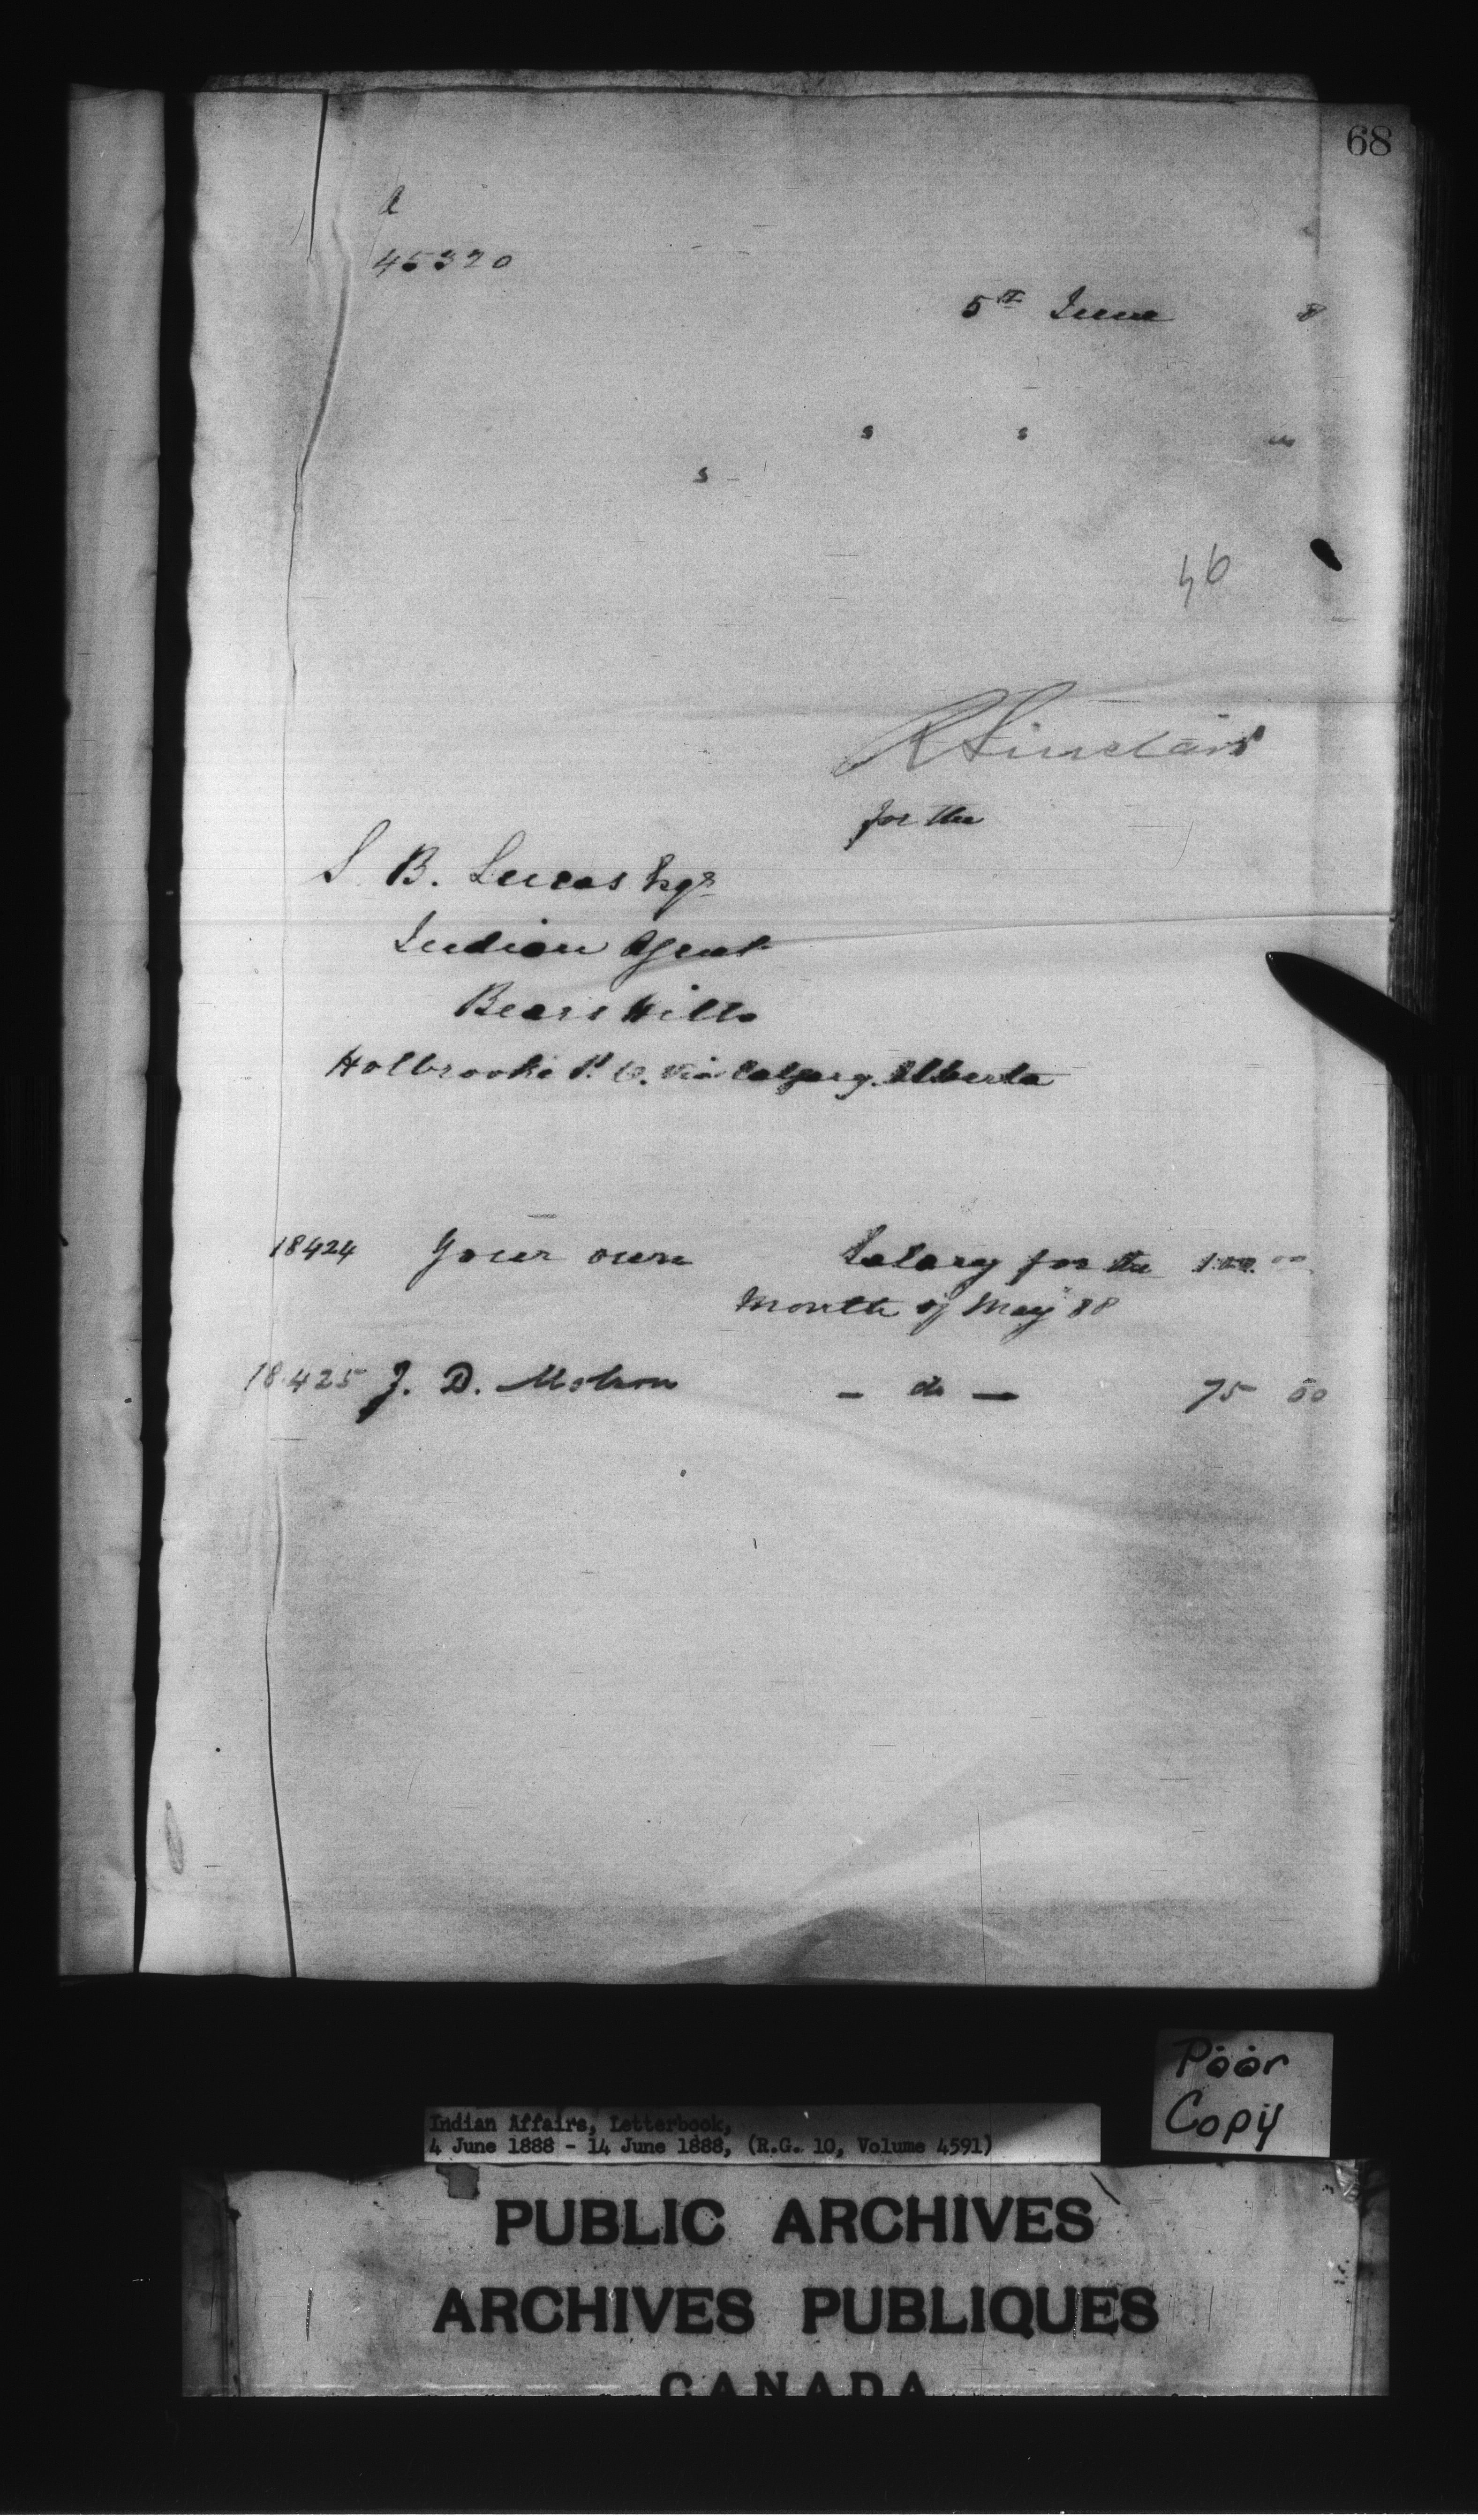 68
A
45320
5th June 8
s s us
s
46
R Sinclair
for the
S. B. Lucas Esqr
Indian Agent
Bears Hills
Holbrooke P. O. via Calgary. Alberta
18424 Your own Salary for the 100 00
Month of May 88
18425 J. D. – do – 75 00
Poor
Copy
Indian Affairs, Letterbook,
4 June 1888 - 14 June 1888, (R.G. 10, Volume 4591)
PUBLIC ARCHIVES
ARCHIVES PUBLIQUES
CANADA